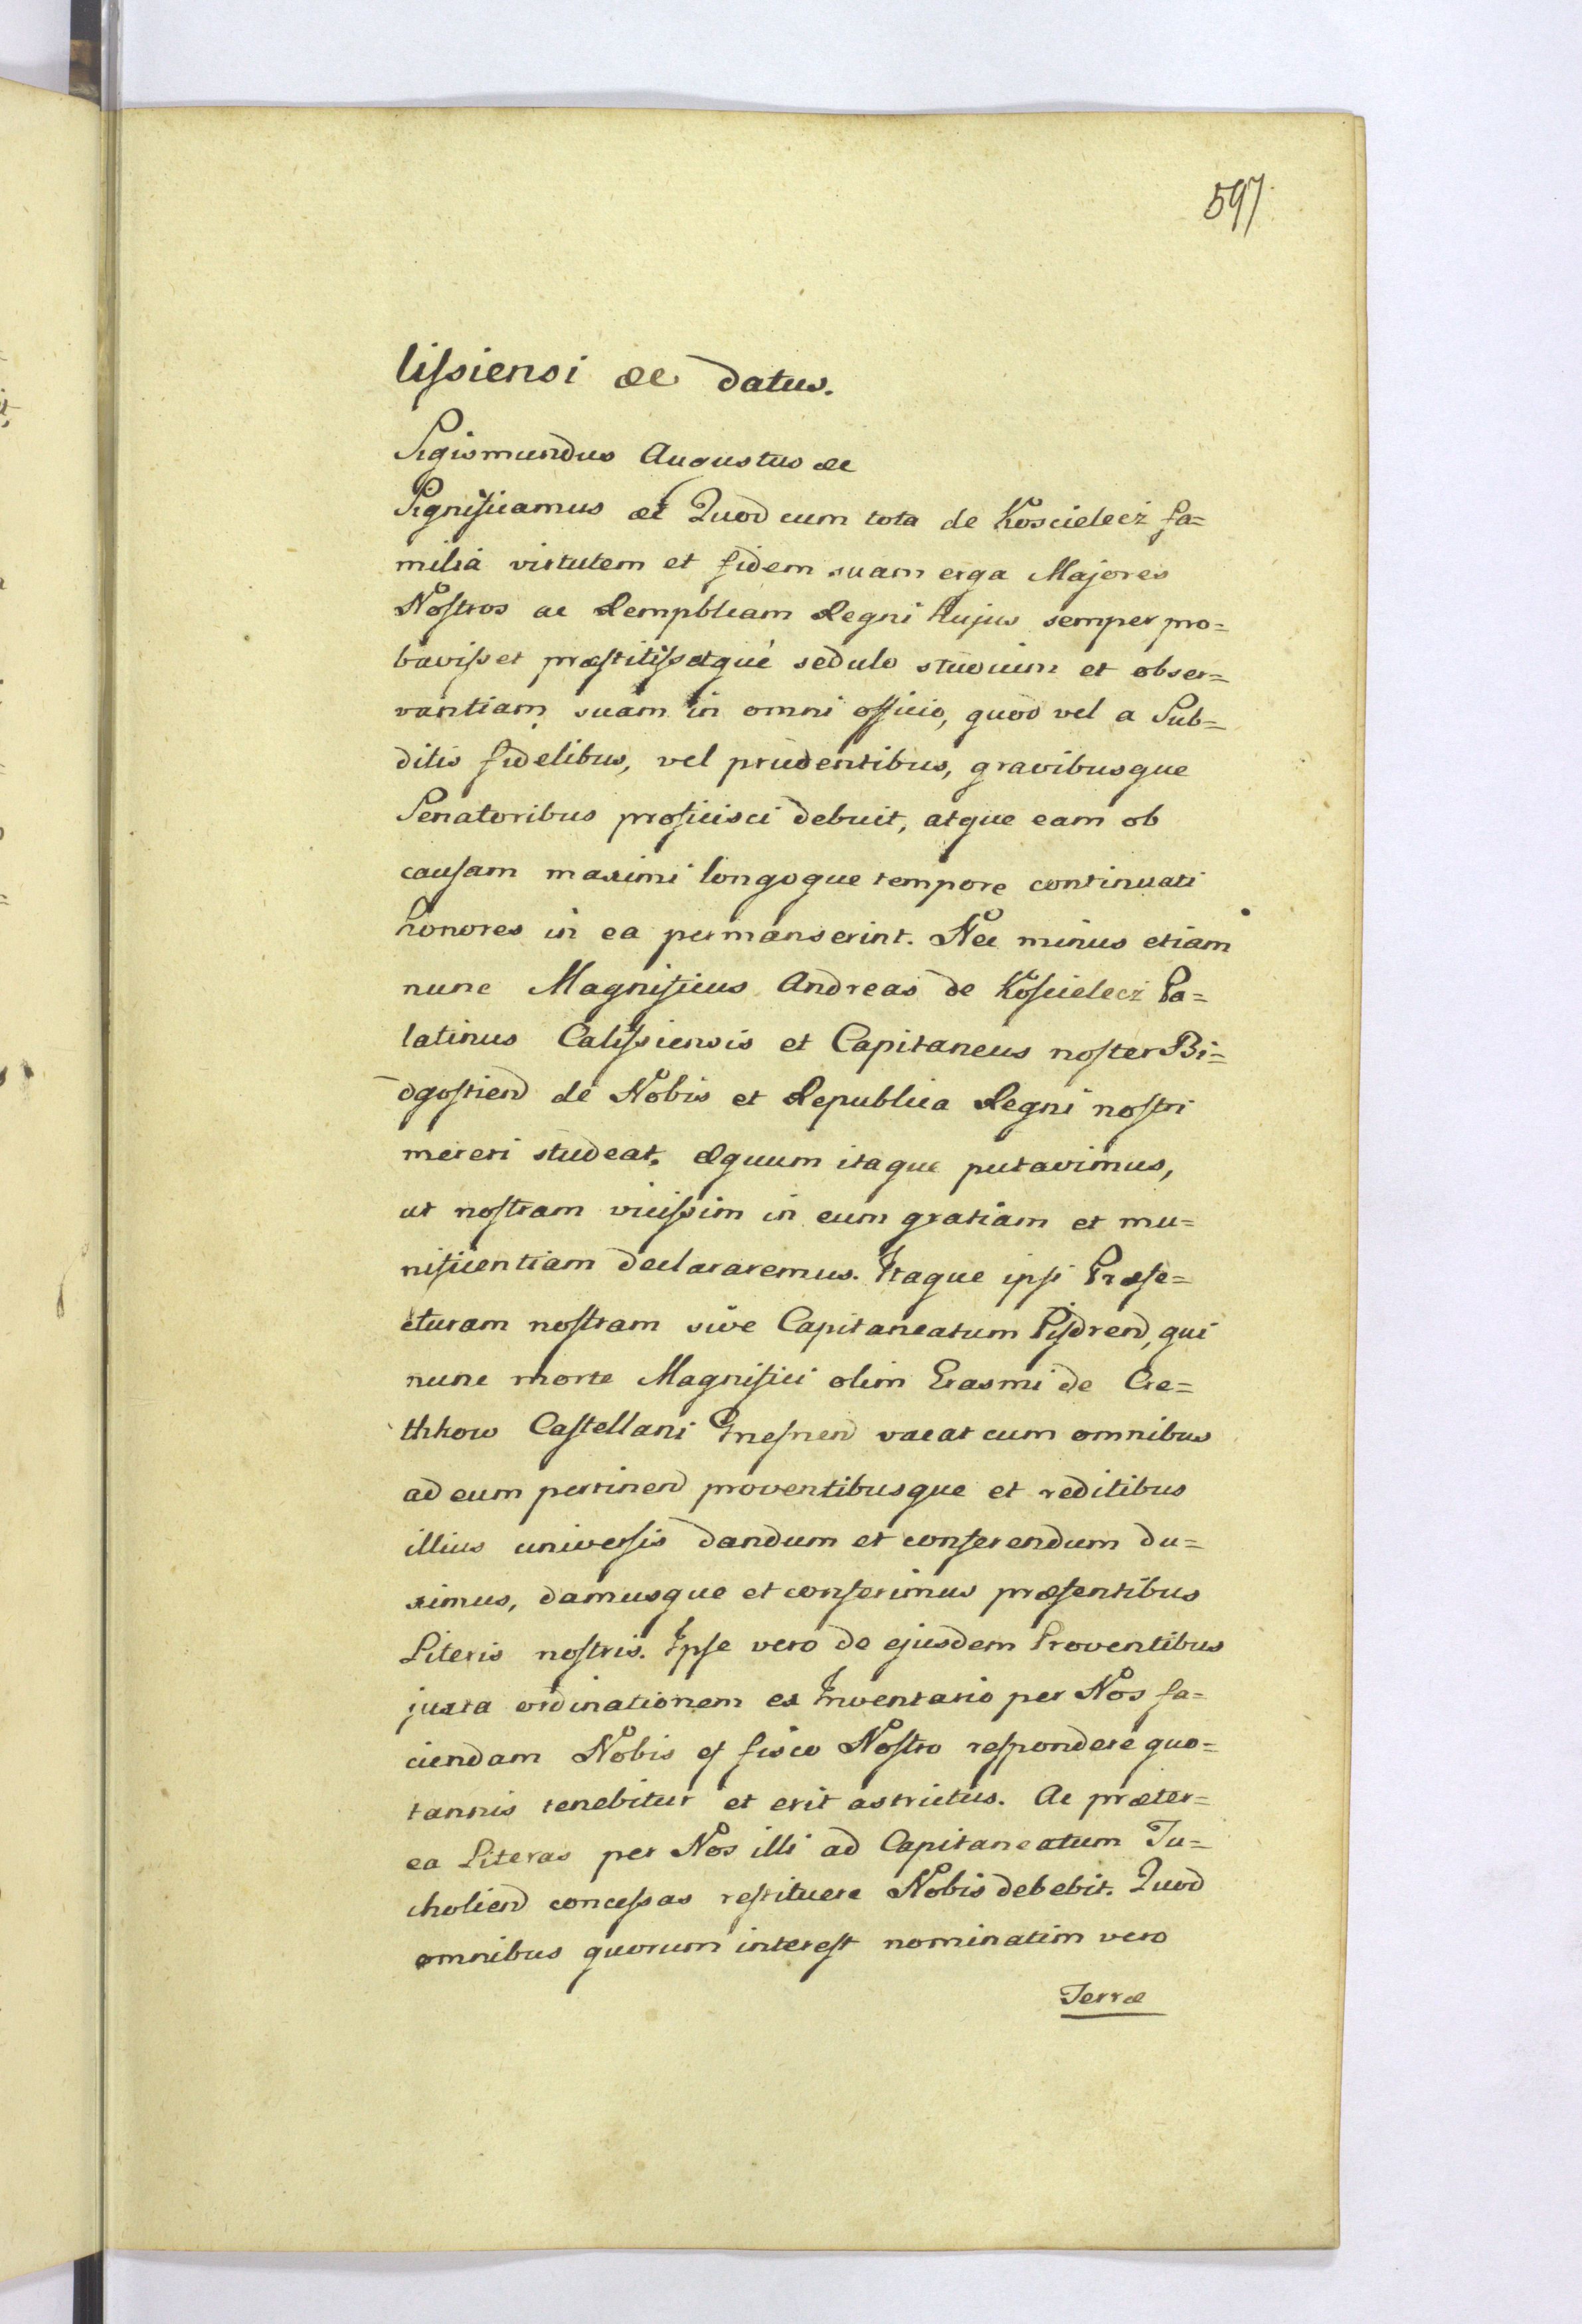 597
lissiensi &c datus.
Sigismundus Augustus &c
Significamus &c Quod cum tota de Koscielecz fa=
milia virtutem et fidem suam erga Majores
Nostros ac Rempblcam Regni hujus semper pro=
bavisset præstitissetque sedulo studium et obser=
vantiam suam in omni officio, quod vel a Sub=
ditis fidelibus, vel prudentibus, gravibusque
Senatoribus proficisci debuit, atque eam ob
causam maximi longoque tempore continuati
honores in ea permanserint. Nec minus etiam
nunc Magnificus Andreas de Koscielecz Pa=
latinus Calissiensis et Capitaneus noster Bi=
dgostien de Nobis et Republica Regni nostri
mereri studeat. Æquum itaque putavimus,
ut nostram vicissim in eum gratiam et mu=
nificentiam declararemus. Itaque ipsi Præfe=
cturam nostram sive Capitaneatum Pisdren, qui
nunc morte Magnifici olim Erasmi de Cre=
thkow Castellani Gnesnen vacat cum omnibus
ad eum pertinen proventibusque et reditibus
illius universis dandum et conferendum du=
ximus, damusque et conferimus præsentibus
Literis nostris. Ipse vero de ejusdem Proventibus
juxta ordinationem ex Inventario per Nos fa=
ciendam Nobis et fisco Nostro respondere quo=
tannis tenebitur et erit astrictus. Ac præter=
ea Literas per Nos illi ad Capitaneatum Tu=
cholien concessas restituere Nobis debebit. Quod
omnibus quorum interest nominatim vero
Terræ